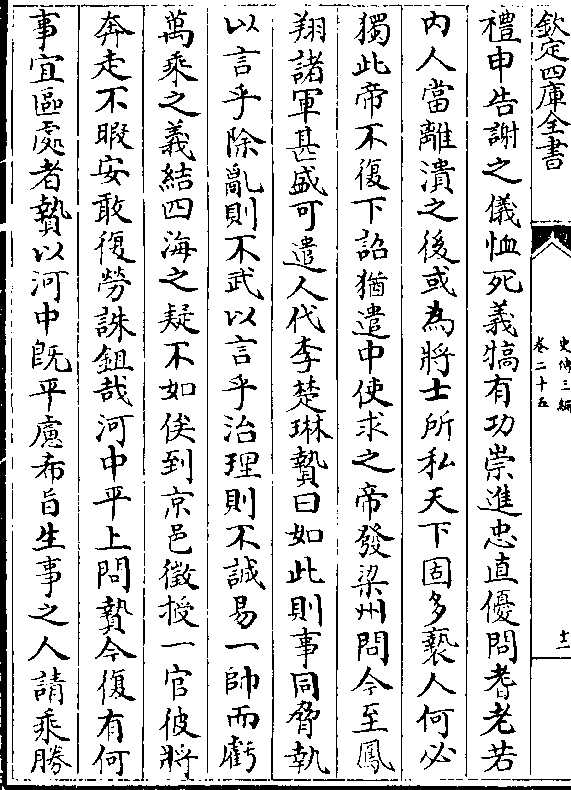 欽定四庫全書
史傳三編
卷二十五
十二
禮申告謝之儀恤死義犒有功崇進忠直優問耆老若
內人當離潰之後或為將士所私天下固多褻人何必
獨此帝不復下詔猶遣中使求之帝發梁州問今至鳳
翔諸軍甚盛可遣人代李楚琳贄曰如此則事同脅執
以言乎除亂則不武以言乎治理則不誠易一帥而虧
萬乘之義結四海之疑不如俟到京邑徵授一官彼將
奔走不暇安敢復勞誅鉏哉河中平上問贄今復有何
事宜區處者贄以河中既平慮希旨生事之人請乘勝